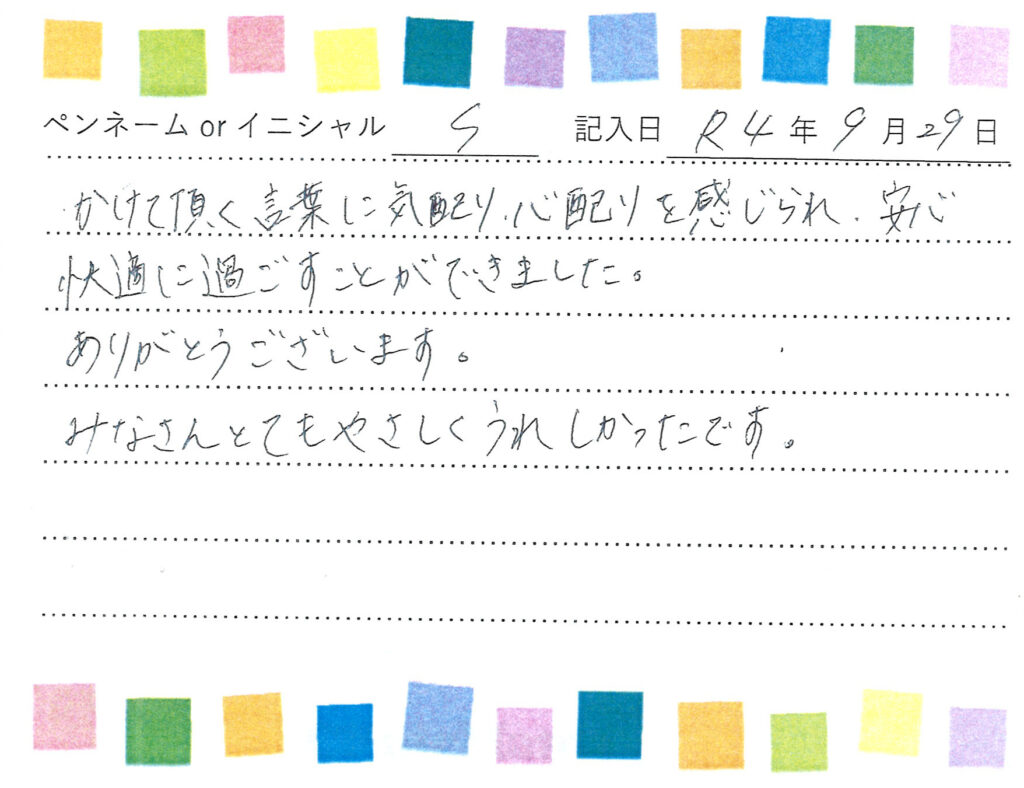 ペンネーム or イニシャル S 記入日 R4年9月29日
かけて頂く言葉に気配り、心配りを感じられ、安心
快適に過ごすことができました。
ありがとうございます。
みなさんとてもやさしくうれしかったです。